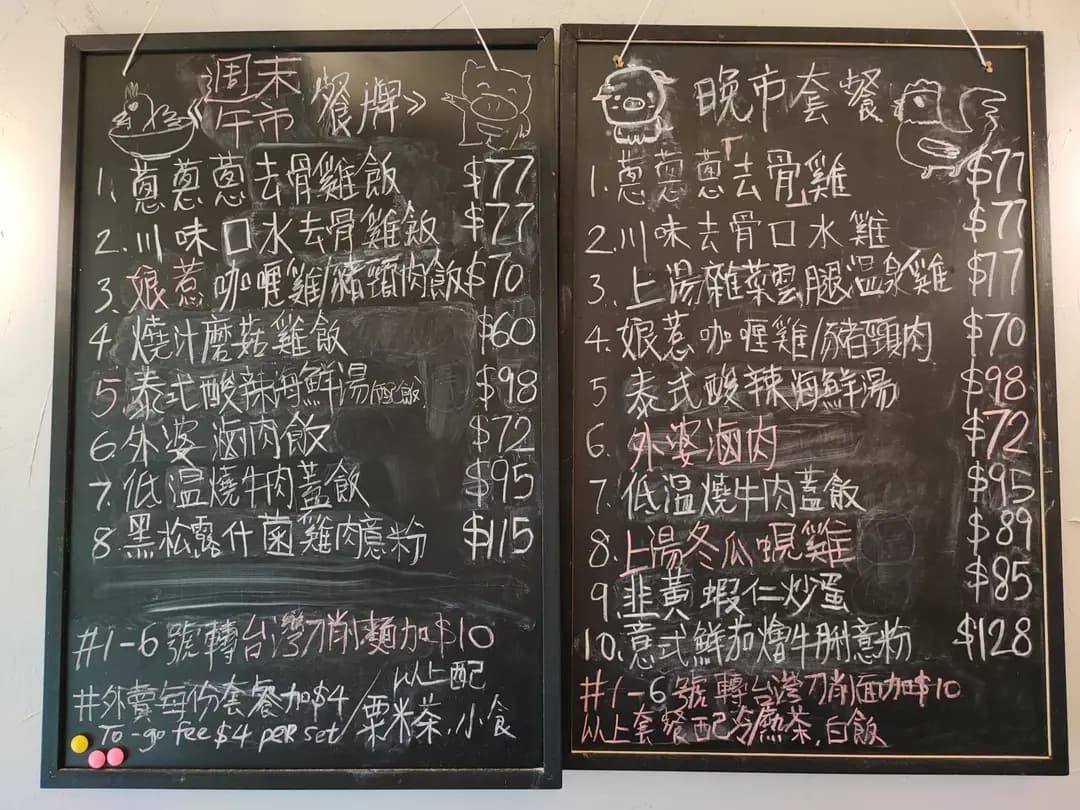 週末
午市
餐牌
1. 蔥蔥蔥去骨雞飯 $77
2. 川味口水去骨雞飯 $77
3. 娘惹咖喱雞/豬頸肉飯 $70
4. 燒汁磨菇雞飯 $60
5. 泰式酸辣海鮮湯(配飯) $98
6. 外婆滷肉飯 $72
7. 低溫燒牛肉蓋飯 $95
8. 黑松露什菌雞肉意粉 $115
#1-6號轉台灣刀削麵加$10
以上配
#外賣每份套餐加$4/粟米茶,小食
To-go fee $4 per set
晚市套餐
1. 蔥蔥蔥去骨雞 $77
2. 川味去骨口水雞 $77
3. 上湯雜菜雲腿溫泉雞 $77
4. 娘惹咖喱雞/豬頸肉 $70
5 泰式酸辣海鮮湯 $98
6. 外婆滷肉 $72
7. 低溫燒牛肉蓋飯 $95
8. 上湯冬瓜蜆雞 $89
9. 韭黃蝦仁炒蛋 $85
10. 意式鮮茄燴牛脷意粉 $128
#1-6號轉台灣刀削面加$10
以上套餐配冷熱茶,白飯